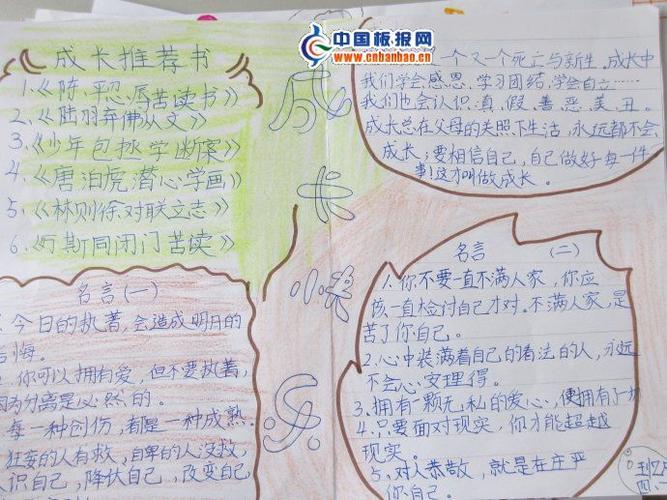 中国板报网
www.cnbanbao.cn
成长推荐书
1.《陈平忍辱苦读书》
2.《陆羽弃佛从文》
3.《少年包拯学断案》
4.《唐泊虎潜心学画》
5.《林则徐对联立志》
6.《万斯同闭门苦读》
成长
小快
乐
一个又一个死亡与新生,成长中
我们学会感恩、学习团结,学会自立……
我们也会认识真、假、善、恶、美、丑。
成长总在父母的关照下生活,永远都不会
成长;要相信自己,自己做好每一件
事!这才叫做成长。
名言(一)
今日的执著,会造成明月的
悔。
你可以拥有爱,但不要执著,
因为分离是必然的。
每一种创伤,都是一种成熟。
狂妄的人有救,自卑的人没救,
人识自己,降伏自己,改变自己
名言 (二)
1.你不要一直不满人家,你应
该一直检讨自己才对。不满人家,是
苦了你自己。
2.心中装满着自己的看法的人,永远
不会心安理得。
3.拥有一颗无私的爱心,便拥有了一切
4.只要面对现实,你才能超越
现实。
5.对人恭敬,就是在庄严
你自己。